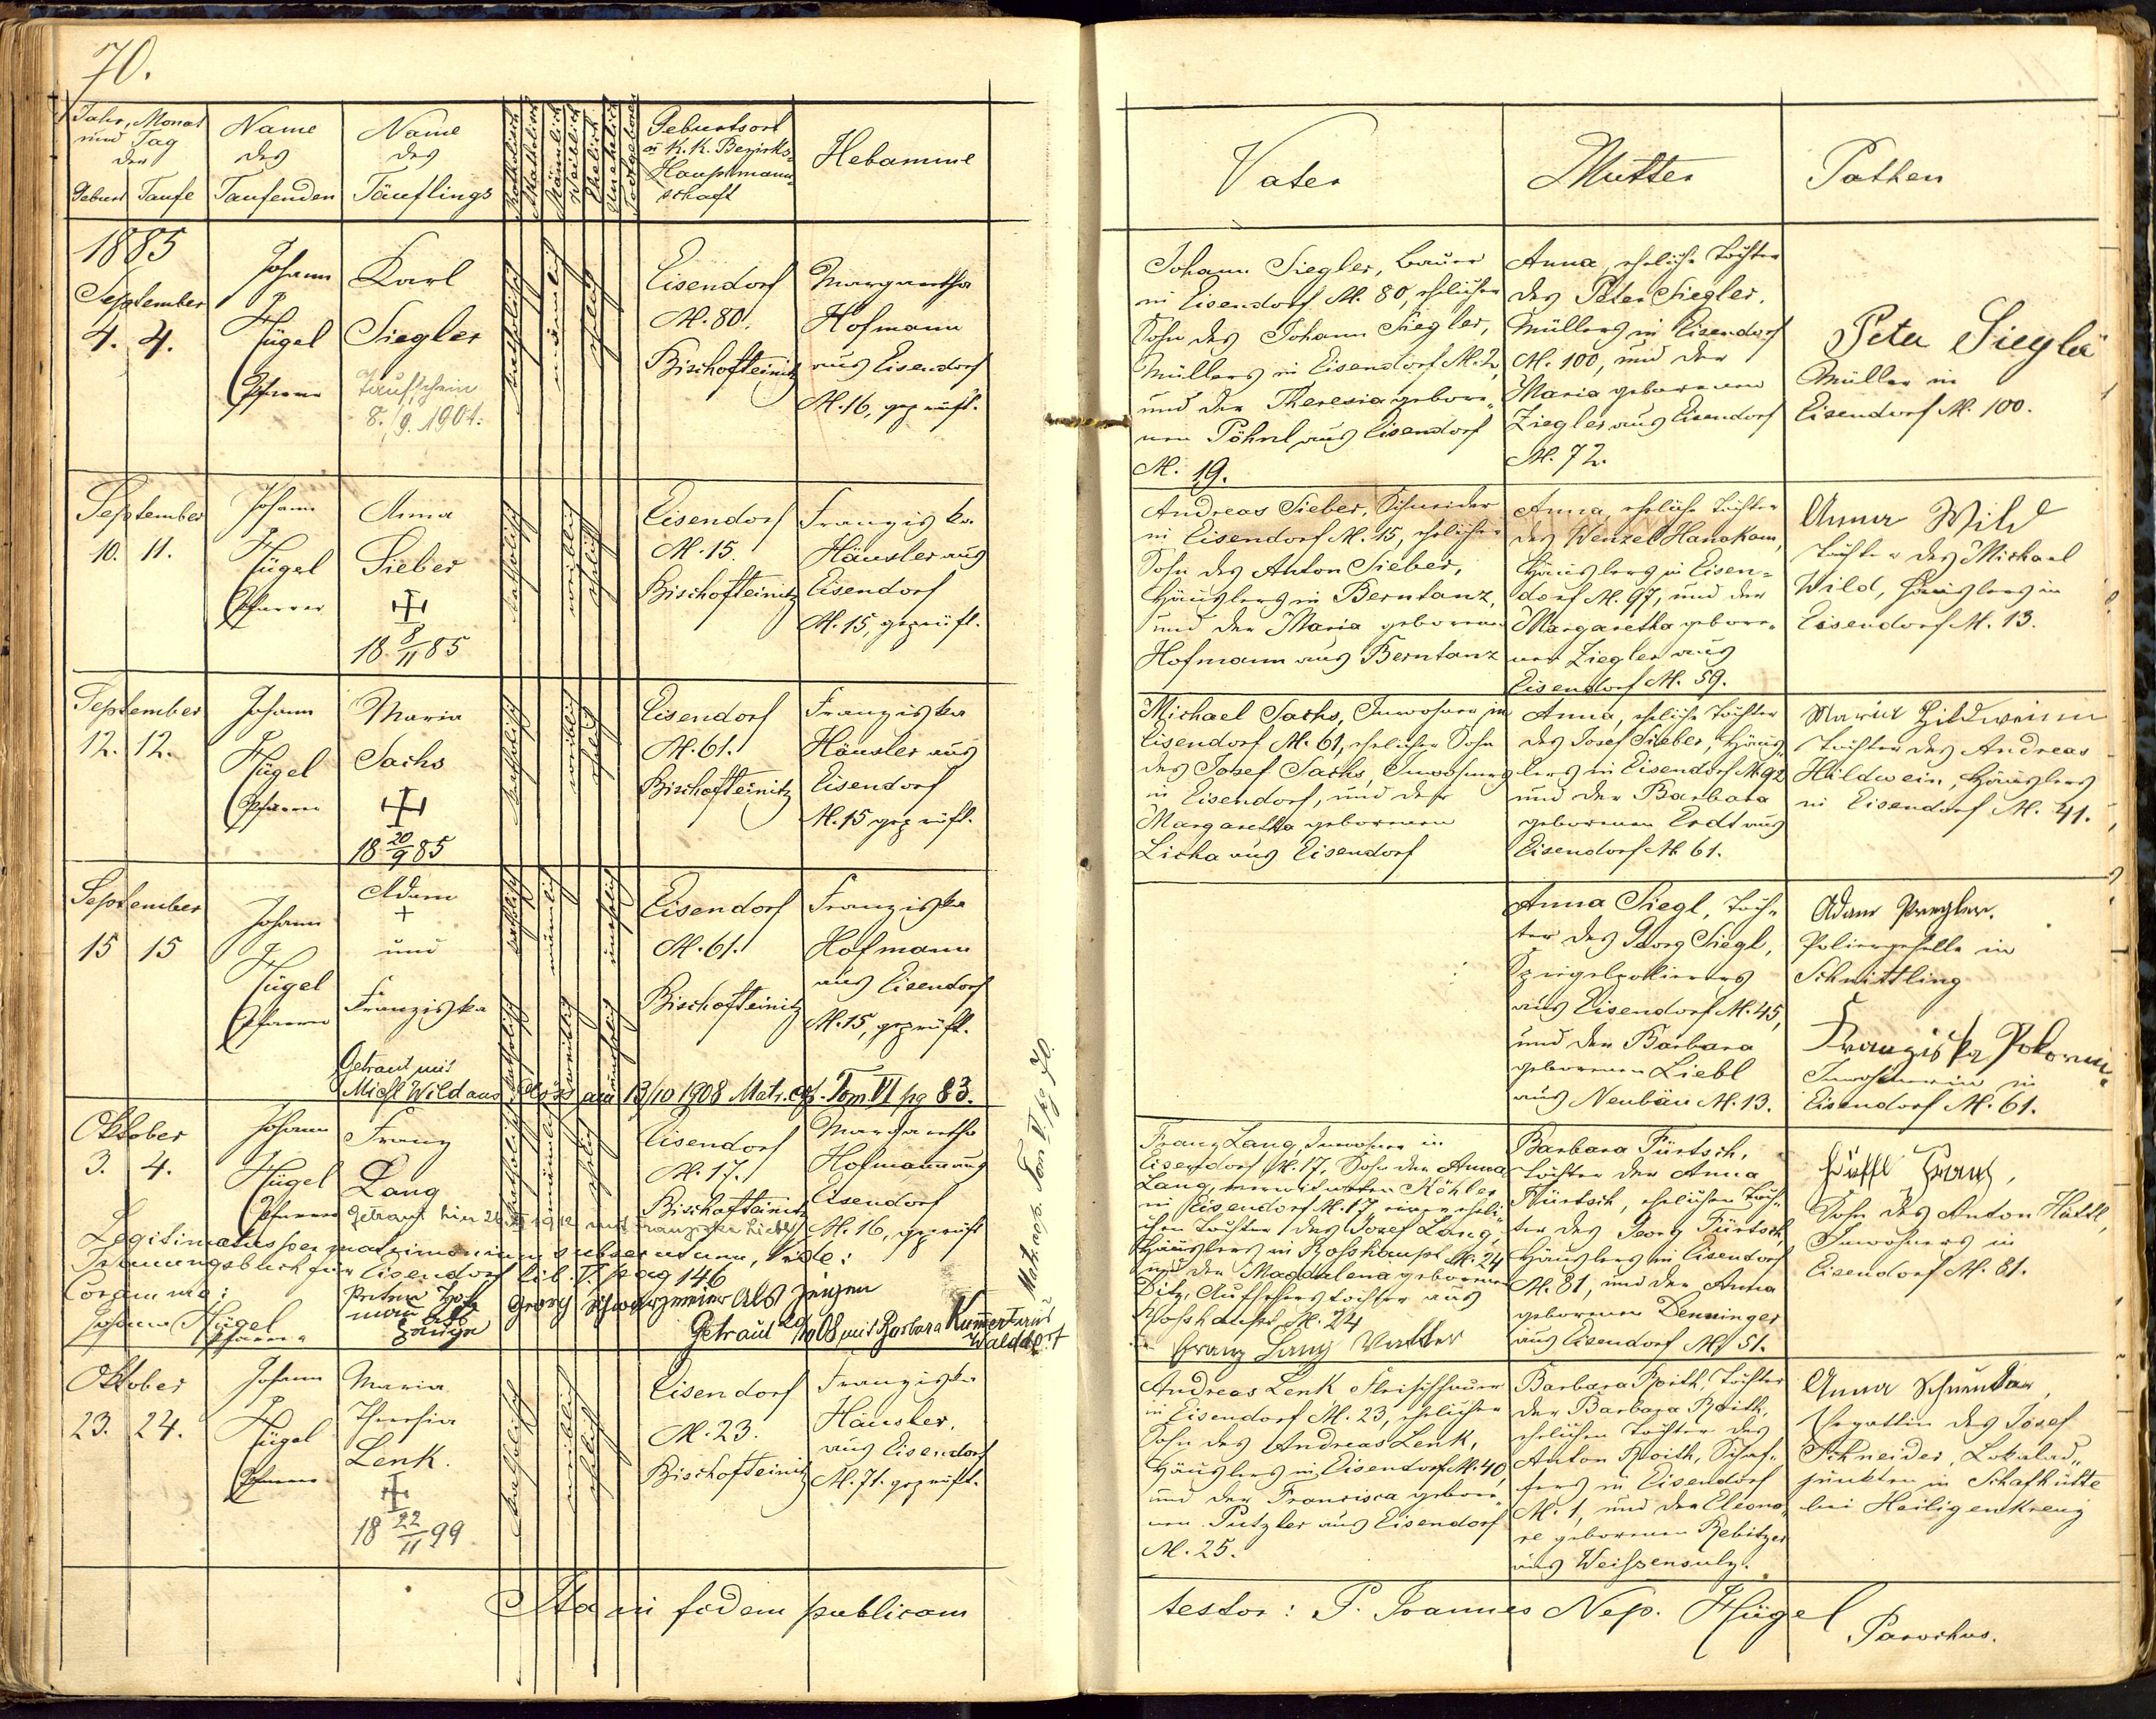 70.
Jahr, Monat
und Tag
der
Geburt Taufe
Name
des
Taufenden
Name
des
Täuflings
Katholisch
Akatholisch
Männlich
Weiblich
Ehelich
Unehelich
Todtgeboren
Geburtsort
K. K. Bezirks-
Hauptmann-
schaft
Hebamme
Vater
Mutter
Pathen
1885
September
4. 4.
Johann
Hügel
Pfarrer
Karl
Siegler
Taufschein
8./9. 1904.
katholisch
männlich
ehelich
Eisendorf
N. 80.
Bischofteinitz
Margaretha
Hofmann
aus Eisendorf
N. 16, geprüft.
Johann Siegler, Bauer
in Eisendorf N. 80, ehelicher
Sohn des Johann Siegler,
Müllers in Eisendorf N. 2,
und der Theresia gebore-
nen Pöhnl aus Eisendorf
N. 19.
Anna, eheliche Tochter
des Peter Siegler,
Müllers in Eisendorf
N. 100, und der
Maria geborenen
Ziegler aus Eisendorf
N. 72.
Peter Siegler
Müller in
Eisendorf N. 100.
September
10. 11.
Johann
Hügel
Pfarrer
Anna
Sieber
18 8/11 85
katholisch
weiblich
ehelich
Eisendorf
N. 15.
Bischofteinitz
Franziska
Häusler aus
Eisendorf
N. 15, geprüft.
Andreas Sieber, Schneider
in Eisendorf N. 15, ehelicher
Sohn des Anton Sieber,
Häuslers in Berntanz,
und der Maria geborenen
Hofmann aus Berntanz
Anna, eheliche Tochter
des Wenzel Hanakam,
Häuslers in Eisen-
dorf N. 97, und der
Margaretha gebore-
nen Ziegler aus
Eisendorf N. 59.
Anna Wild
Tochter des Michael
Wild, Häuslers in
Eisendorf N. 13.
September
12. 12.
Johann
Hügel
Pfarrer
Maria
Sachs
18 20/9 85
katholisch
weiblich
ehelich
Eisendorf
N. 61.
Bischofteinitz
Franziska
Häusler aus
Eisendorf
N. 15 geprüft.
Michael Sachs, Inwohner in
Eisendorf N. 61, ehelicher Sohn
des Josef Sachs, Inwohners
in Eisendorf, und der
Margaretha geborenen
Licha aus Eisendorf
Anna, eheliche Tochter
des Josef Sieber, Häus-
lers in Eisendorf N. 92
und der Barbara
geborenen Erdt aus
Eisendorf N. 61.
Maria Hildwein
Tochter des Andreas
Hildwein, Häuslers
in Eisendorf N. 41.
September
15 15
Johann
Hügel
Pfarrer
Adam
+
und
Franziska
katholisch
männlich
unehelich
katholisch
weiblich
unehelich
Eisendorf
N. 61.
Bischofteinitz
Franziska
Hofmann
aus Eisendorf
N. 15, geprüft.
Getraut mit
Michl Wild aus am 13/10 1908 Matr. Tom. VI pg 83.
Anna Siegl, Toch-
ter des Georg Siegl,
Spiegelpolierers
aus Eisendorf N. 45,
und der Barbara
geborenen Liebl
aus Neubäu N. 13.
Adam Pregler.
Poliergeselle in
Schmittling
Franziska
Inwohnerin in
Eisendorf N. 61.
Tom. V. pg 70.
Oktober
3. 4.
Johann
Hügel
Pfarrer
Franz
Lang
katholisch
männlich
ehelich
Eisendorf
N. 17.
Bischofteinitz
Margaretha
Hofmann aus
Eisendorf
N. 16, geprüft
Legitimatus per matrimonium subsecutum, vide:
Trauungsbuch für Eisendorf Lib. V. pag 146
Coram me:
Johann Hügel
Pfarrer
Georg Schwarzmeier als Zeugen
Getraut 08 mit Barbara Kummert aus
Walddorf
Franz Lang, Inwohner in
Eisendorf N. 17, Sohn der Anna
Lang, verwitweten Köhler
in Eisendorf N. 17, eheli-
chen Tochter des Josef Lang,
Häuslers in Rosshaupt N. 24
und der Magdalena geborenen
Ditz, Aufsehers Tochter aus
Rosshaupt N. 24
Franz Lang Vatter
Barbara Fürtsch,
Tochter der Anna
Fürtsch, ehelichen Toch-
ter des Georg Fürtsch
Häuslers in Eisendorf
N. 81, und der Anna
geborenen Denninger
aus Eisendorf N. 51.
Hüttl Franz,
Sohn des Anton Hüttl,
Inwohners in
Eisendorf N. 81.
Oktober
23. 24.
Johann
Hügel
Pfarrer
Maria
Theresia
Lenk.
18 22/11 99
katholisch
weiblich
ehelich
Eisendorf
N. 23.
Bischofteinitz
Franziska
Häusler,
aus Eisendorf
N. 71. geprüft.
Andreas Lenk Fleischhauer
in Eisendorf N. 23, ehelicher
Sohn des Andreas Lenk,
Häuslers in Eisendorf N. 40,
und der Francisca gebore-
nen Putzler aus Eisendorf
N. 25.
Barbara Roith, Tochter
der Barbara Roith,
ehelichen Tochter des
Anton Roith, Schaf-
fers in Eisendorf
N. 1, und der Eleono-
re geborenen Rebitzer
aus Weissensulz.
Anna Schneider,
Ehegattin des Josef
Schneider, Lokalad-
junkten in Schafhütte
bei Heiligenkreuz
Ita in fidem publicam
testor: P. Joannes Nep. Hügel
Parochus.